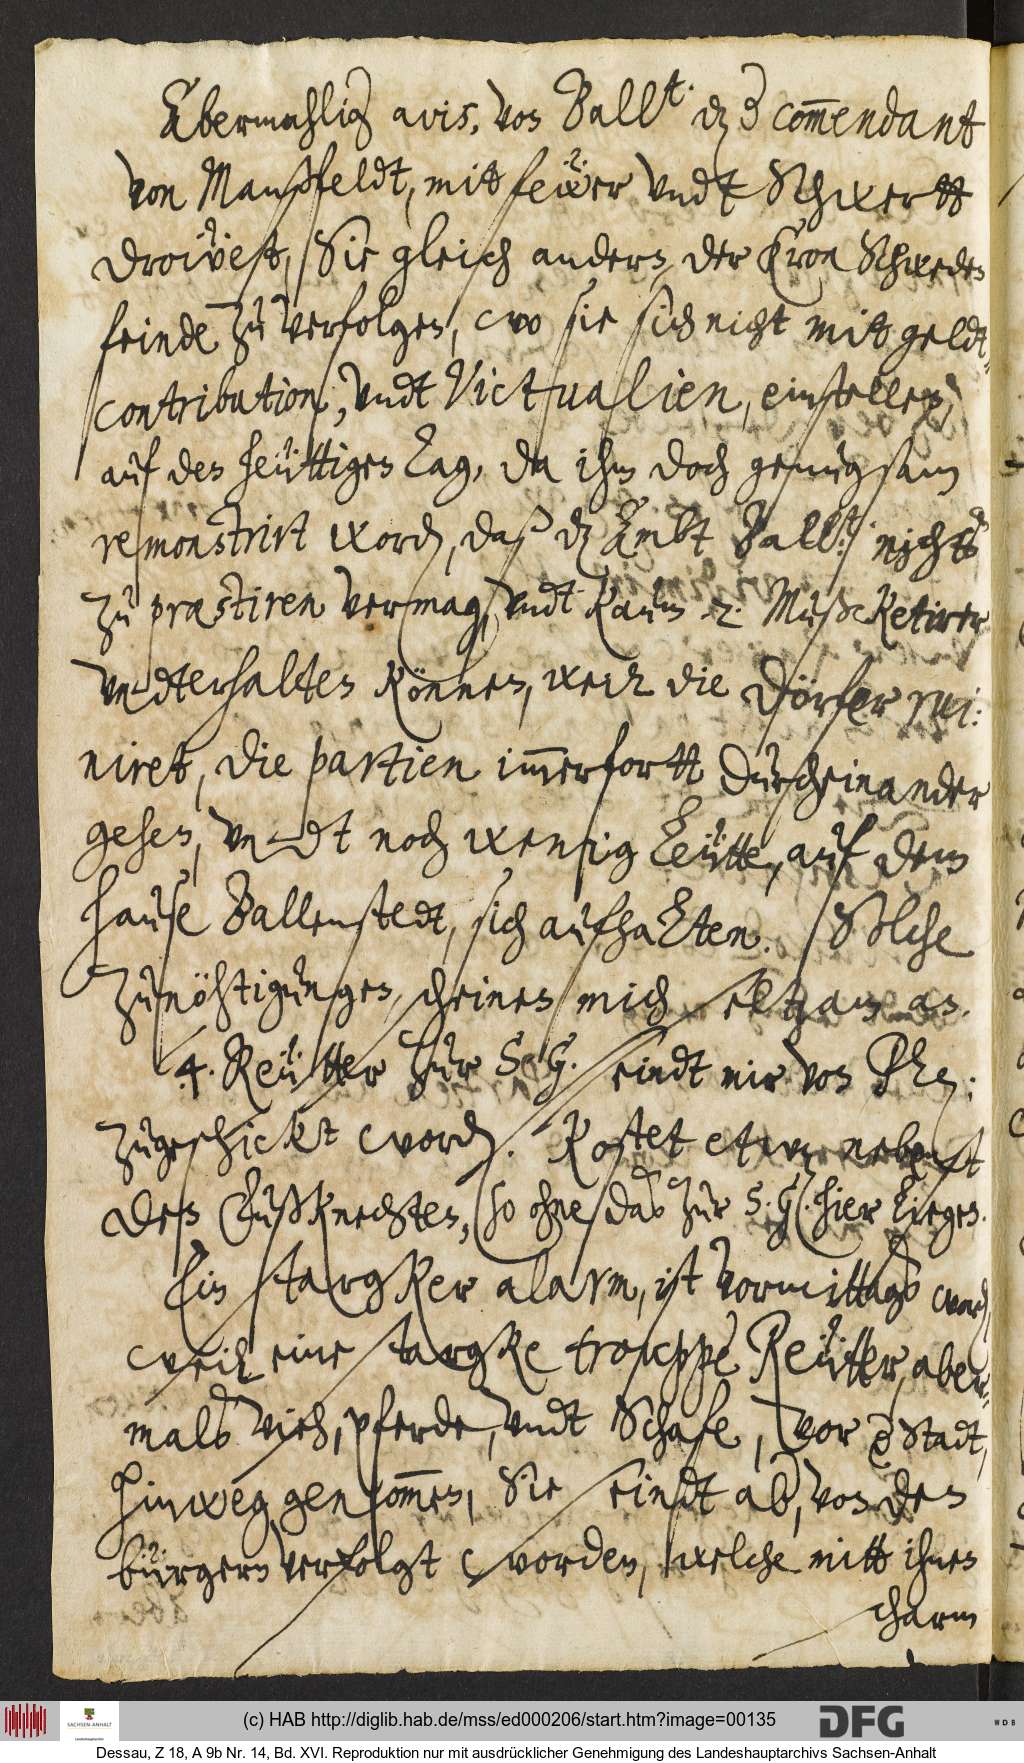 Abermahliges avis, von Ballt. dz der com̄endant
von Manßfeldt, mit feüer vndt Schwertt
droüet, Sie gleich andern, der Cron Schweden
feinde zu verfolgen, wo sie sich nicht mitt geldt-
contribution, vndt Victualien, einstellen,
auf den heüttigen Tag, da ihm doch genugsam
remonstrirt word, daß dz Ambt Ballt. nichts
zu præstiren vermag, vndt kaum 2. Mußketirer
vndterhalten können, weil die dörfer rui-
niret, die partien im̄erfortt durcheinander
gehen, vndt noch wenig Leütte, auf dem
hause Ballenstedt, sich aufhalten. Solche
zunöhtigungen, scheinen mich seltzam an.
4. Reütter zur S. G. seindt mir von
zugeschickt word. Kostet etwz nebenst
den Fußknechten, so ohne das zur S. G. hier liegen.
Ein stargker alarm, ist vormittags word
weil eine stargke trouppe Reütter, aber-
mals vieh, pferde, vndt Schafe, vor der Stadt,
hinweg genom̄en, Sie seindt ab, von den
bürgern verfolgt worden, welche mitt ihnen
charm
(c) HAB http://diglib.hab.de/mss/ed000206/start.htm?image=00135
SACHSEN-ANHALT
DFG
WDB
Dessau, Z 18, A 9b Nr. 14, Bd. XVI. Reproduktion nur mit ausdrücklicher Genehmigung des Landeshauptarchivs Sachsen-Anhalt